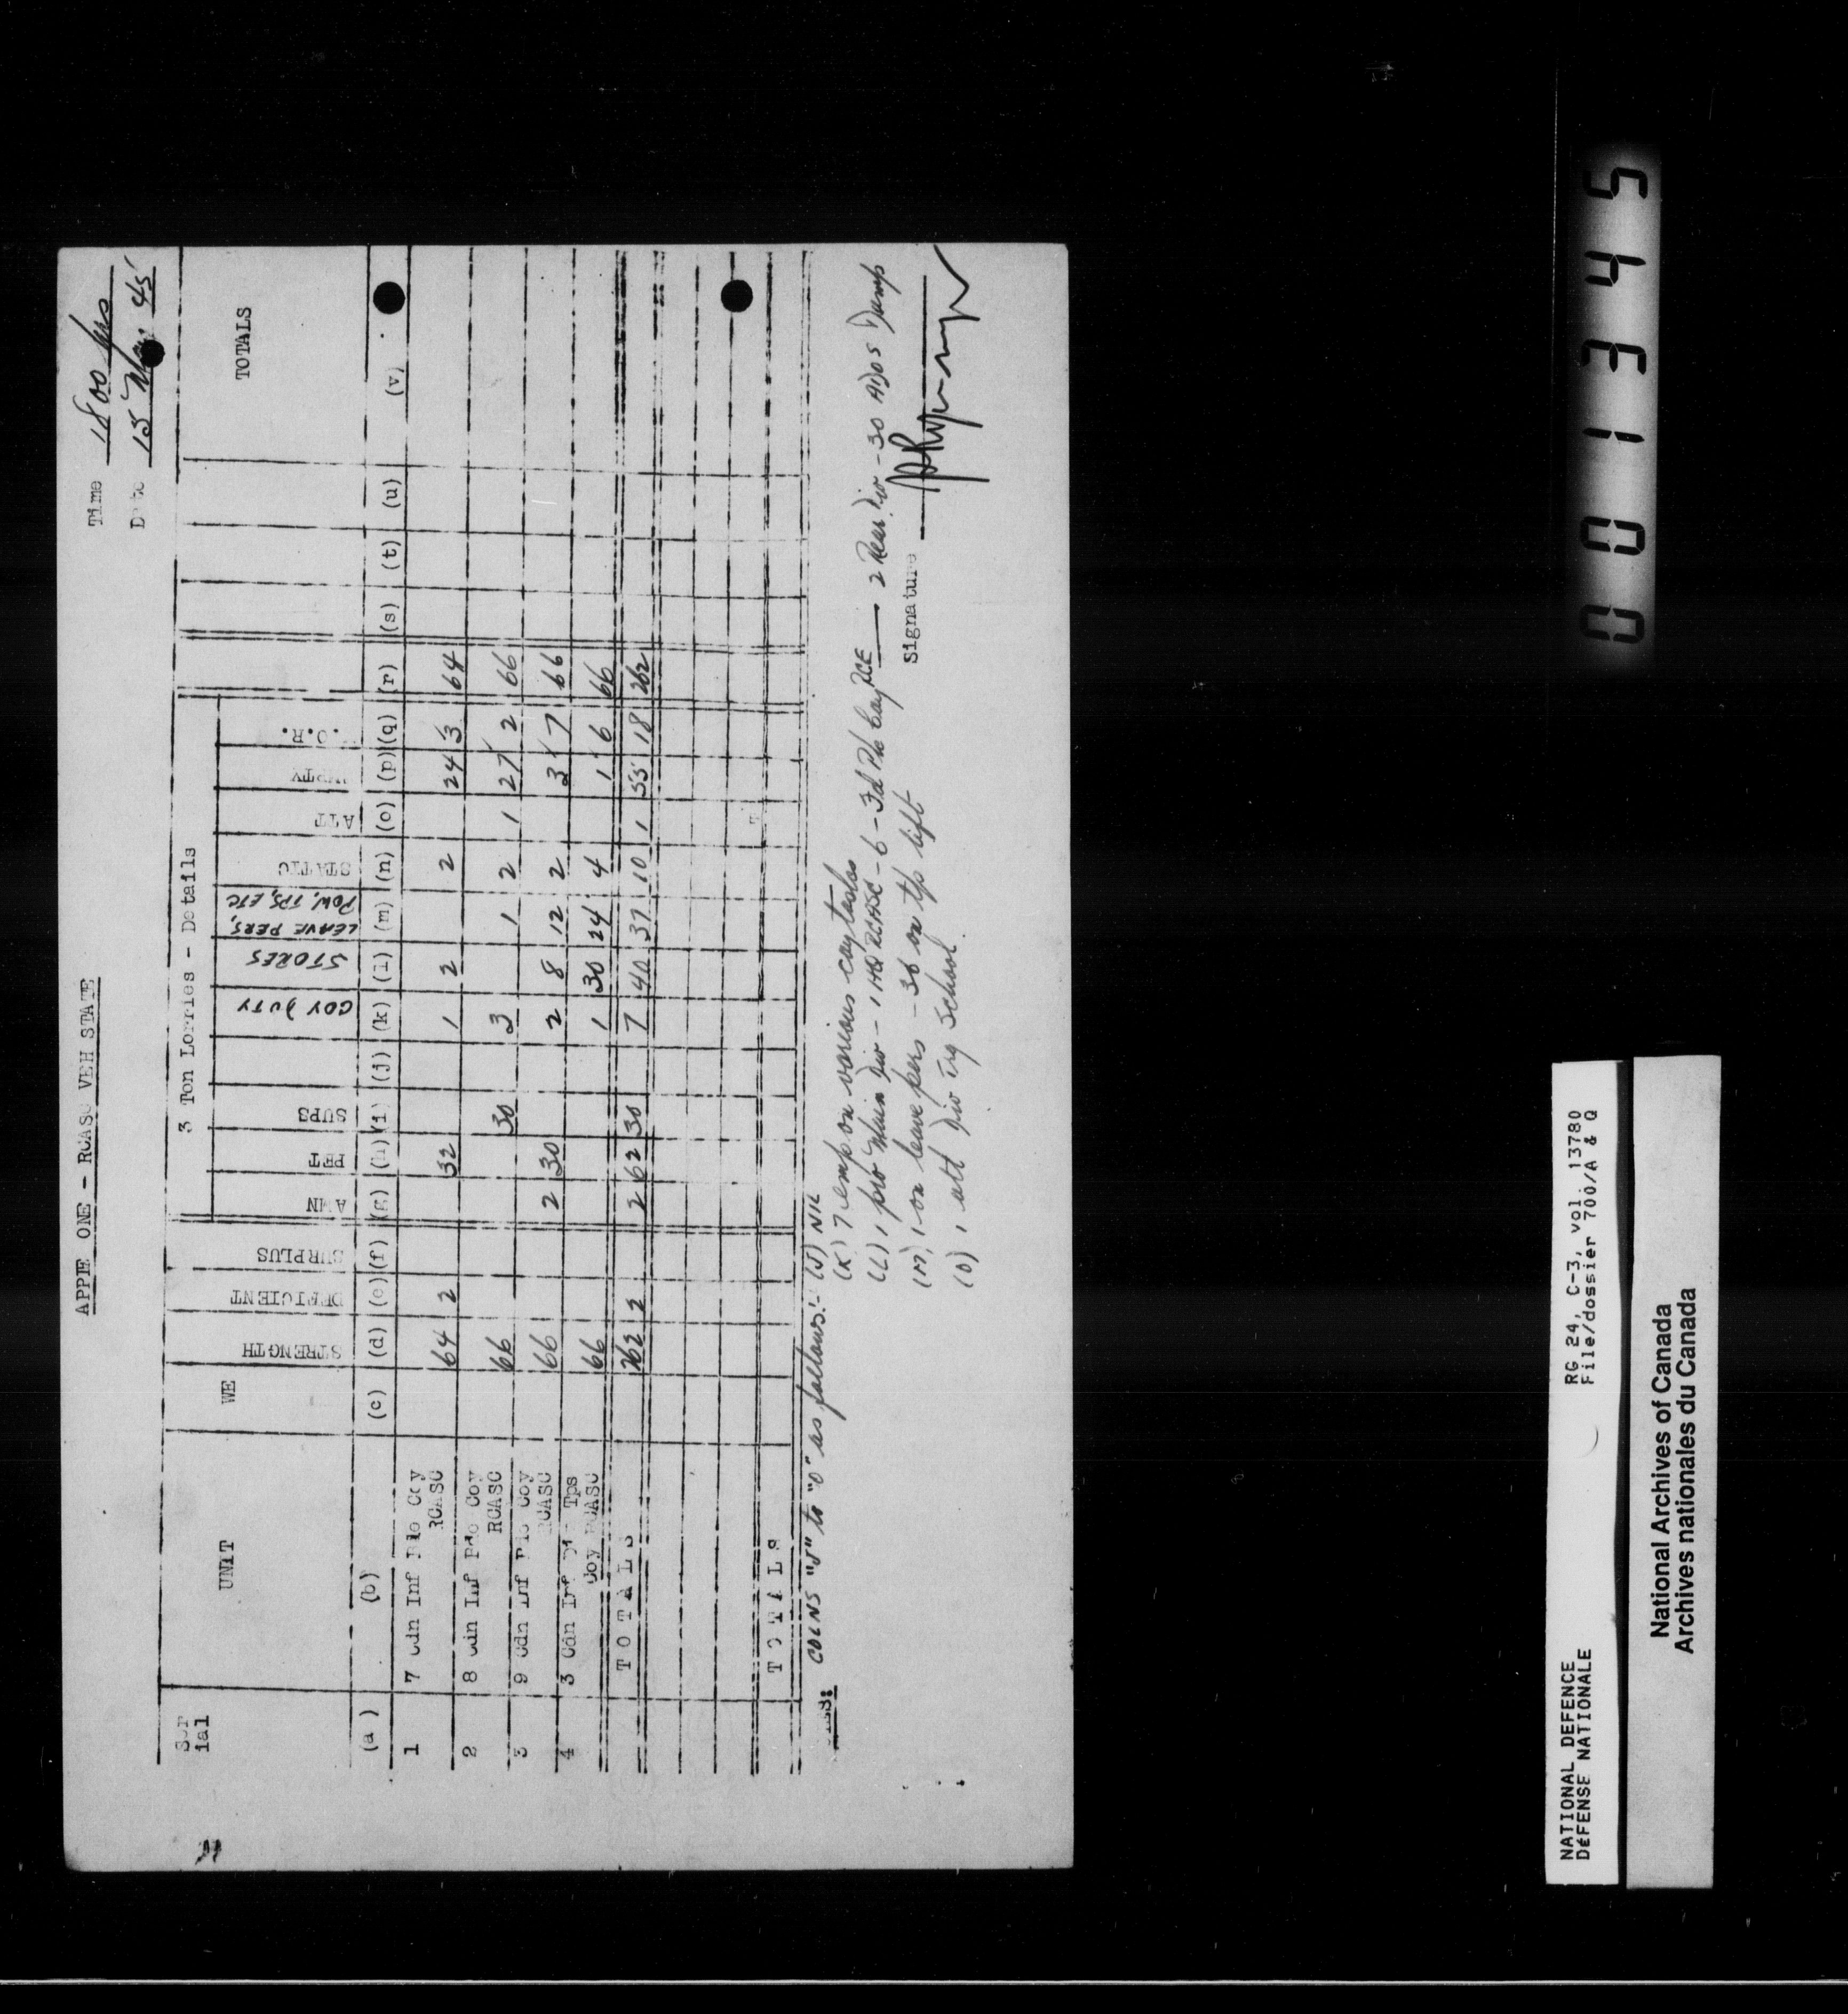 APPIE ONE - RCASC VEH STATE
Time 1800 hrs
Date 15 May 45
3 Ton Lorries - Details
Ser ial UNIT WE STRENGTH DEFICIENT SURPLUS AMN PET SUPS COY DUTY STORES LEAVE PERS, POW, TPS, ETC STATIC ATT MPTY .O.R. TOTALS
(a) (b) (c) (d) (e) (f) (g) (h) (i) (j) (k) (l) (m) (n) (o) (p) (q) (r) (s) (t) (u) (v)
1 7 Cdn Inf Bde Coy RCASC 64 2 32 1 2 2 24 3 64
2 8 Cdn Inf Bde Coy RCASC 66 30 3 1 2 1 27 2 66
3 9 Cdn Inf Bde Coy RCASC 66 2 30 2 8 12 2 3 7 66
4 3 Cdn Inf Div Tps Coy RCASC 66 1 30 24 4 1 6 66
TOTALS 262 2 2 62 30 7 40 37 10 1 55 18 262
TOTALS
COLNS "J" to "O" as follows:- (J) NIL
(K) 7 emp on various coy tasks
(L) 1 pro Main Div - 1 HQ RCASC - 6 - Fd Pk Coy RCE - 2 Rear Div - 30 ADOS Dump
(M) 1 on leave pers - 36 on tp lift
(O) 1 att Div Trg School.
Signature
001345
NATIONAL DEFENCE
DÉFENSE NATIONALE
RG 24, C-3, vol. 13780
File/dossier 700/A & Q
National Archives of Canada
Archives nationales du Canada